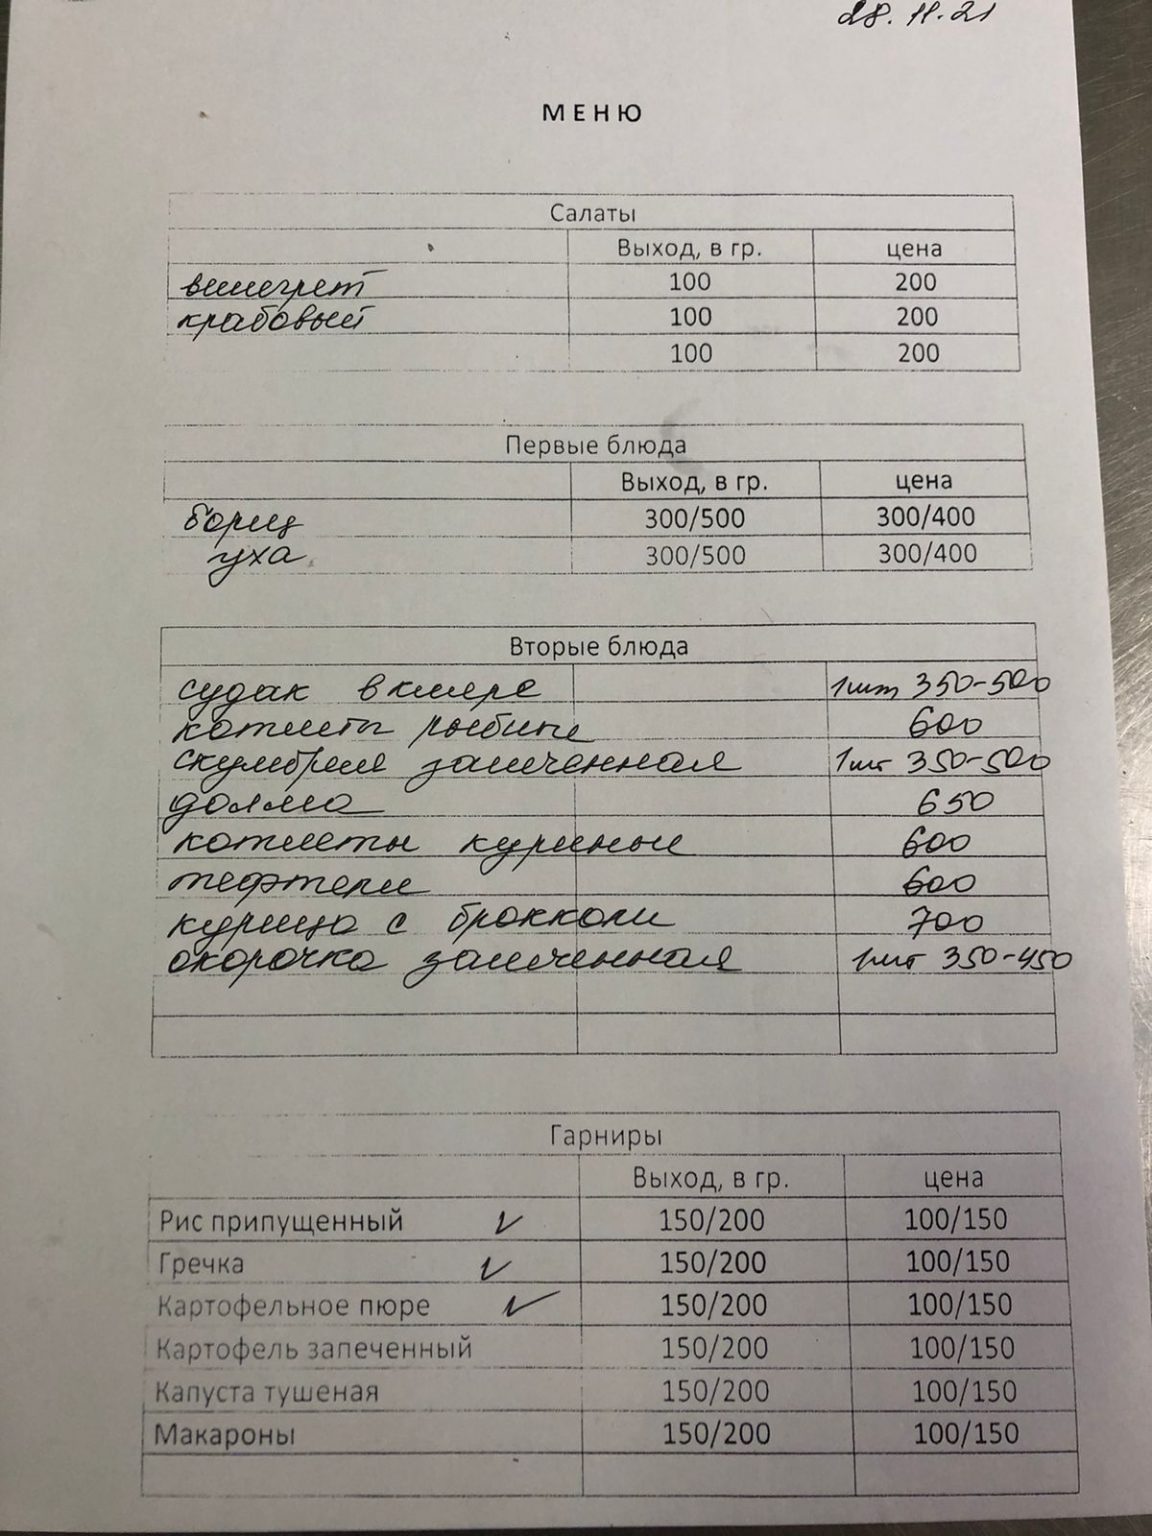 28.11.21
МЕНЮ
Салаты
Выход, в гр. цена
винегрет 100 200
крабовый 100 200
100 200
Первые блюда
Выход, в гр. цена
борщ 300/500 300/400
уха 300/500 300/400
Вторые блюда
судак в кляре 1шт 350-500
котлеты рыбные 600
скумбрия запеченная 1шт 350-500
долма 650
котлеты куриные 600
тефтели 600
курица с брокколи 700
окорочка запеченная 1шт 350-450
Гарниры
Выход, в гр. цена
Рис припущенный ✓ 150/200 100/150
Гречка ✓ 150/200 100/150
Картофельное пюре ✓ 150/200 100/150
Картофель запеченный 150/200 100/150
Капуста тушеная 150/200 100/150
Макароны 150/200 100/150